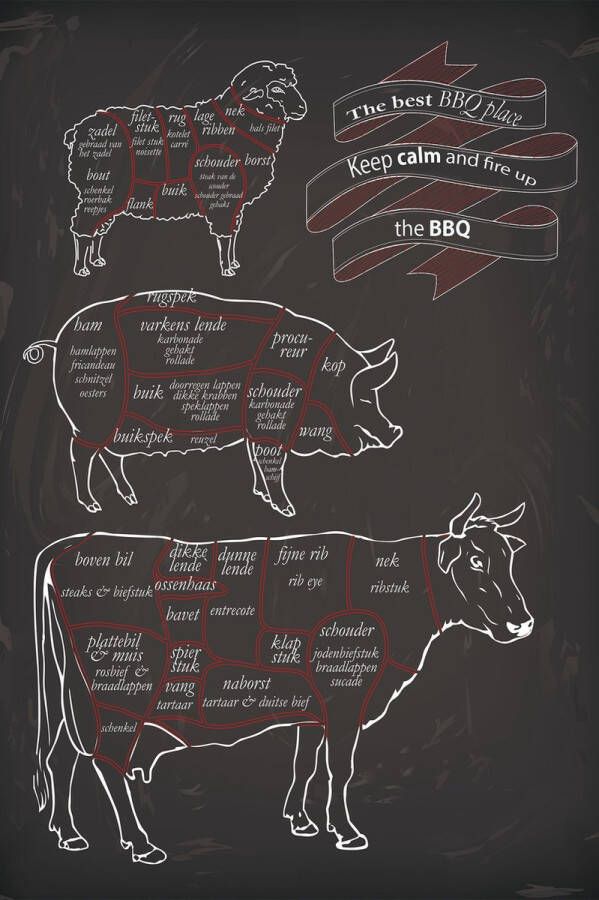 The best BBQ place
Keep calm and fire up
the BBQ
zadel
gebraad van
het zadel
filet-
stuk
filet stuk
noisette
rug
kotelet
carré
lage
ribben
nek
hals filet
bout
schenkel
roerbak
reepjes
flank
buik
schouder
steak van de
schouder gebraad
gebakt
borst
rugspek
ham
hamlappen
fricandeau
schnitzel
oesters
varkens lende
karbonade
gehakt
rollade
procu-
reur
kop
buik
doorregen lappen
dikke krabben
speklappen
rollade
schouder
karbonade
gehakt
rollade
wang
buikspek
reuzel
poot
schenkel
ham-
schijf
boven bil
steaks & biefstuk
dikke
lende
dunne
lende
ossenhaas
bavet
entrecote
fijne rib
rib eye
nek
ribstuk
plattebil
& muis
rosbief &
braadlappen
spier
stuk
vang
tartaar
klap
stuk
naborst
tartaar & duitse bief
schouder
jodenbiefstuk
braadlappen
sucade
schenkel